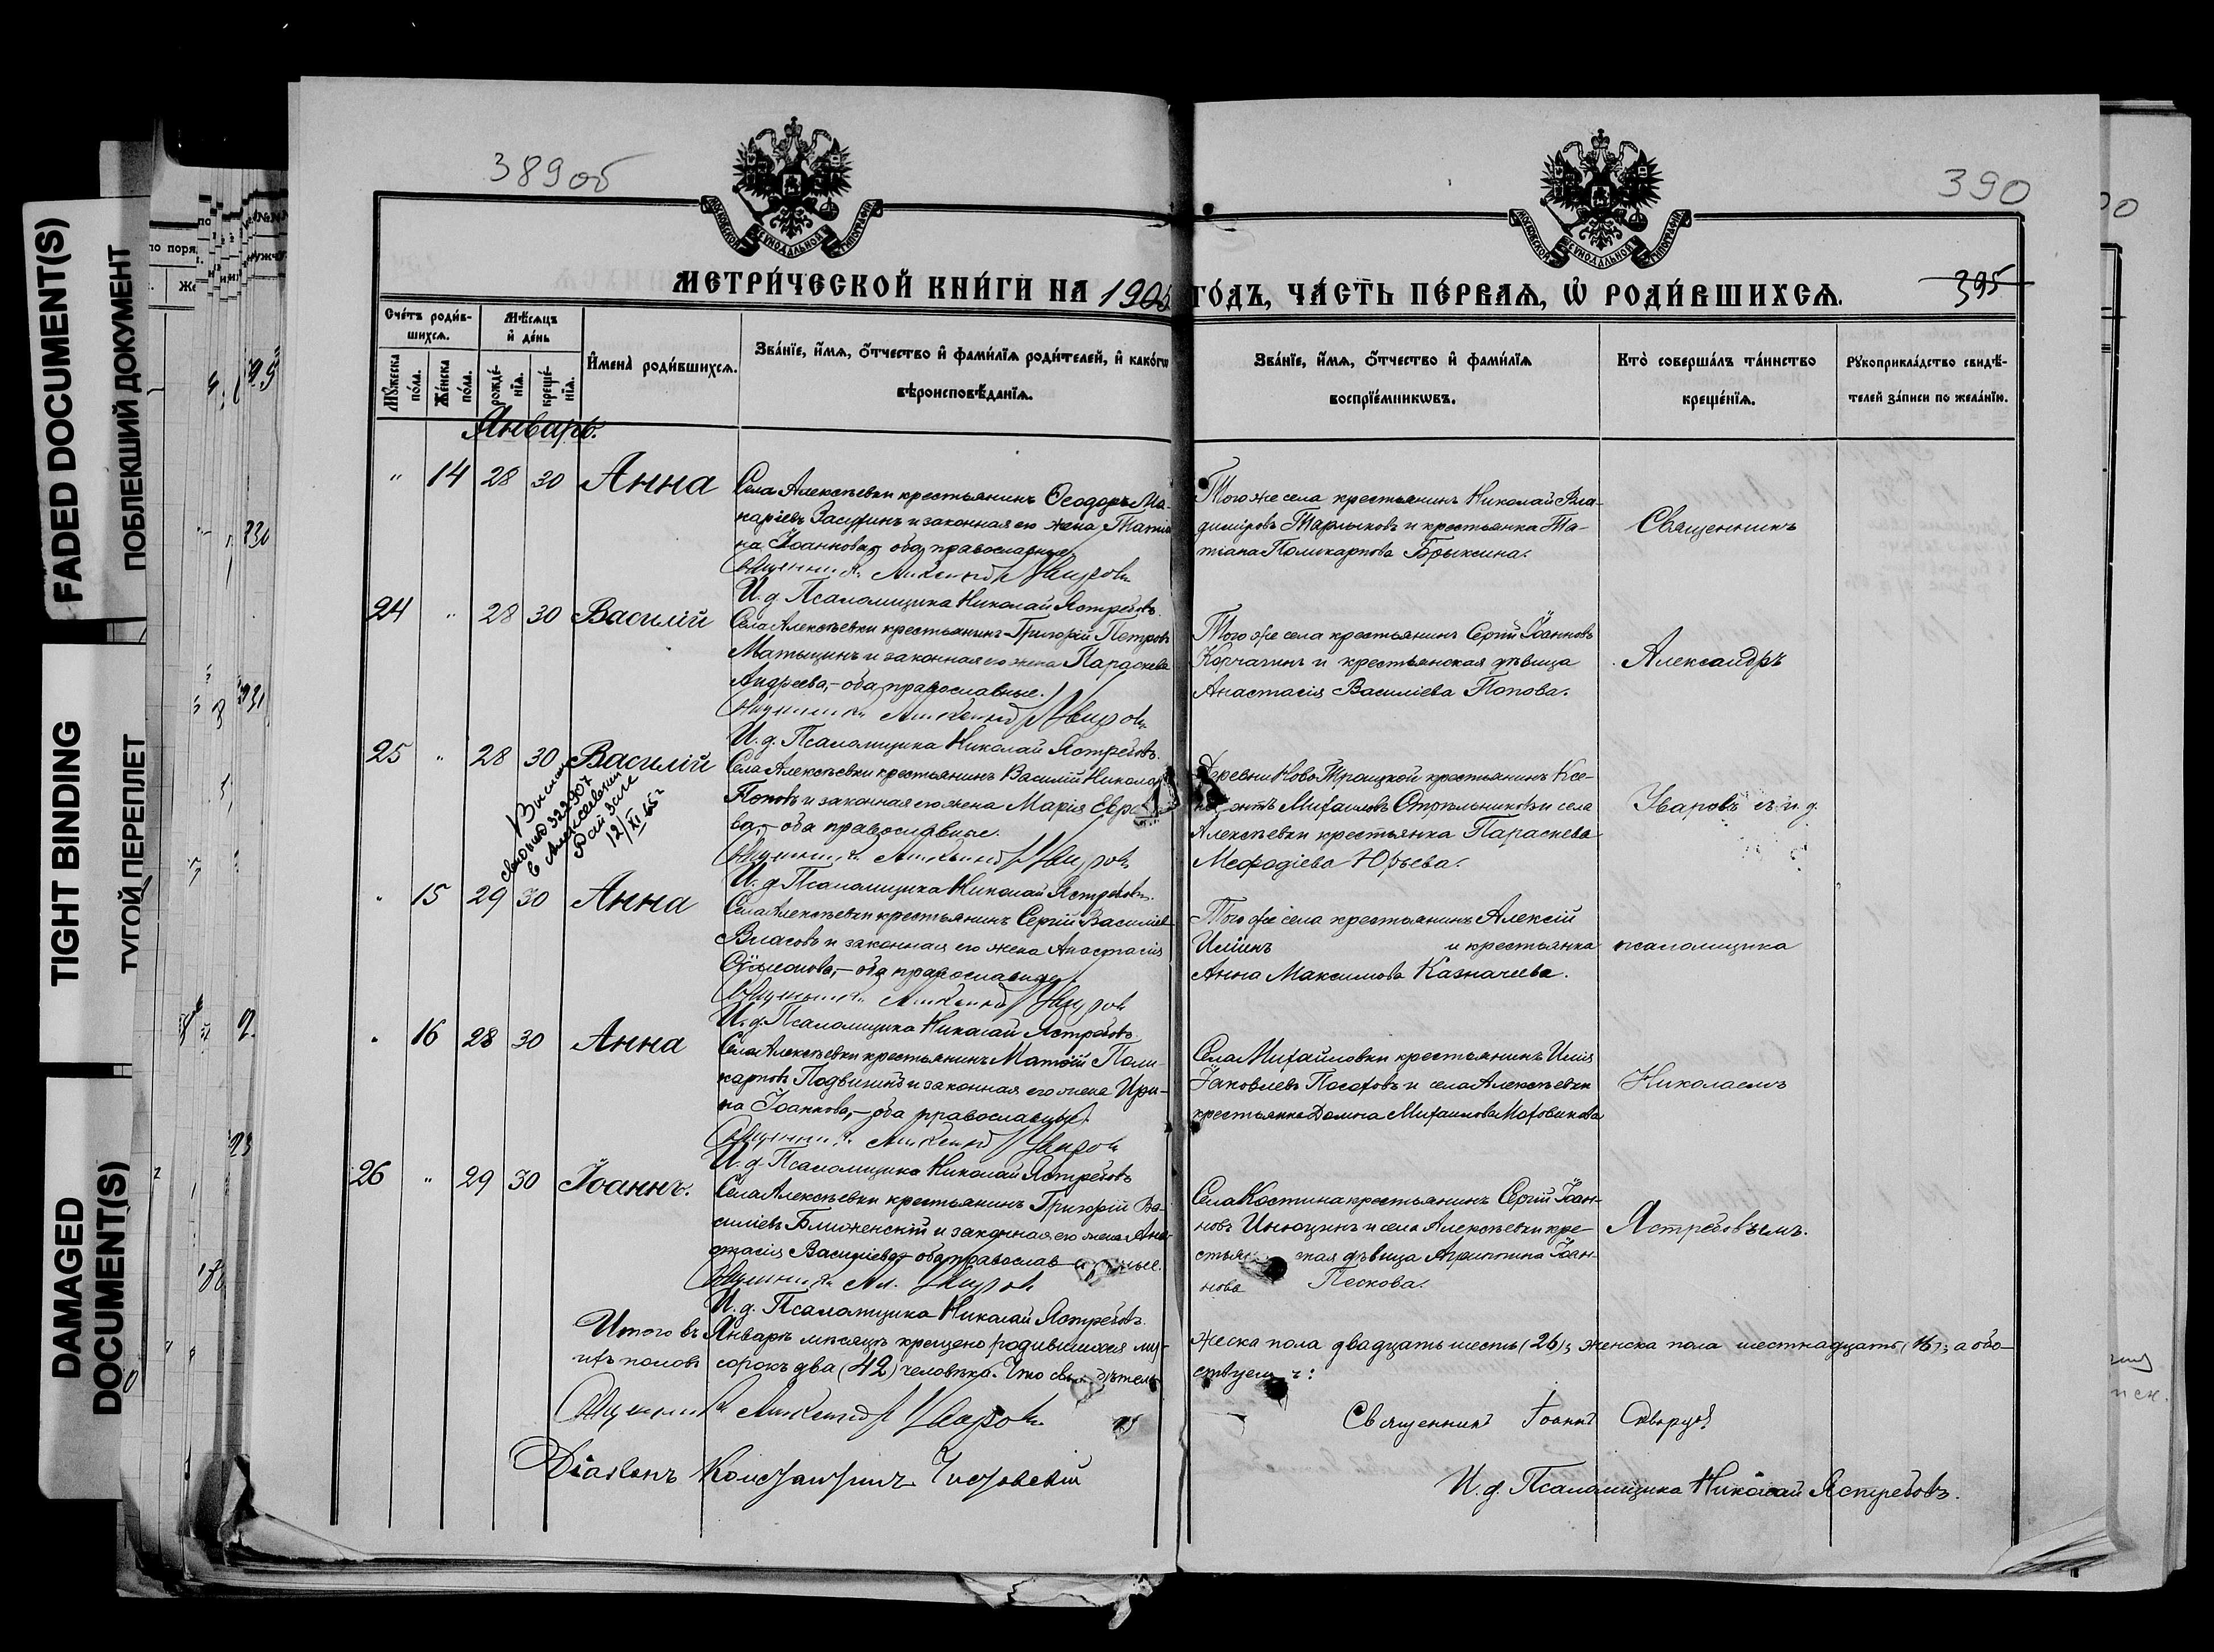 FADED DOCUMENT(S)
ПОБЛЕКШИЙ ДОКУМЕНТ
TIGHT BINDING
ТУГОЙ ПЕРЕПЛЕТ
DAMAGED DOCUMENT(S)
389об
390
395
МОСКОВСКОЙ СѴНОДАЛЬНОЙ ТИПОГРАФІИ
МОСКОВСКОЙ СѴНОДАЛЬНОЙ ТИПОГРАФІИ
МЕТРИ́ЧЕСКОЙ КНИ́ГИ НА 1905 ГО́ДЪ, ЧА́СТЬ ПЕ́РВАѦ, Ѽ РОДИ́ВШИХСѦ.
Сче́тъ роди́в-
шихсѧ.
Мꙋ́жеска по́ла.
Же́нска по́ла.
Мѣ́сѧцъ
и҆ де́нь
рожде́-
нїѧ.
креще́-
нїѧ.
И҆мена̀ роди́вшихсѧ.
Зва́нїе, и҆́мѧ, ѻ҆́тчество и҆ фами́лїѧ роди́телей, и҆ како́гѡ
вѣроисповѣ́данїѧ.
Зва́нїе, и҆́мѧ, ѻ҆́тчество и҆ фами́лїѧ
воспрїе́мникѡвъ.
Кто̀ соверша́лъ та́инство
креще́нїѧ.
Рꙋкоприкла́дство свидѣ́-
телей за́писи по жела́нїю.
Январь.
" 14 28 30 Анна
Села Алексѣевки крестьянинъ Ѳеодоръ Ма-
каріевъ Засухинъ и законная его жена Татіа
на Іоаннова, оба православные
Священникъ Александр Уваровъ
И. д. Псаломщика Николай Ястребовъ.
Того же села крестьянинъ Николай Вла-
диміровъ Тарлыковъ и крестьянка Та-
тіана Поликарпова Брыксина.
Священникъ
24 " 28 30 Василій
Села Алексѣевки крестьянинъ Григорій Петровъ
Матыцинъ и законная его жена Параскева
Андреева, - оба православные.
Священникъ Александр Уваровъ
И. д. Псаломщика Николай Ястребовъ.
Того же села крестьянинъ Сергій Іоанновъ
Корчагинъ и крестьянская дѣвица
Анастасія Василіева Попова.
Александръ
25 " 28 30 Василій
свид. 12/XI-65г
Села Алексѣевки крестьянинъ Василій Николаев
Поповъ и законная его жена Марія
ва, - оба православные.
Священникъ Александр Уваровъ
И. д. Псаломщика Николай Ястребовъ.
Деревни Ново Троицкой крестьянинъ Ксе-
нофонтъ Михаиловъ Стрѣльниковъ и села
Алексѣевки крестьянка Параскева
Меѳодіева Юрьева.
Уваровъ съ и. д.
" 15 29 30 Анна
Села Алексѣевки крестьянинъ Сергій Василіев
Власовъ и законная его жена Анастасія
оба православные.
Священникъ Александр Уваровъ
И. д. Псаломщика Николай Ястребовъ
Того же села крестьянинъ Алексій
Илінъ и крестьянка
Анна Максимова Казначеева.
псаломщика
" 16 28 30 Анна
Села Алексѣевки крестьянинъ Матѳій Поли-
карповъ Подвигинъ и законная его жена Ири-
на Іоаннова, - оба православные.
Священникъ Александр Уваровъ
И. д. Псаломщика Николай Ястребовъ
Села Михайловки крестьянинъ Илія
Іаковлевъ Посоховъ и села Алексѣевки
крестьянка Домна Михаилова Маховикова
Николаемъ
26 " 29 30 Іоаннъ.
Села Алексѣевки крестьянинъ Григорій Ва-
силіевъ Ближенскій и законная его жена Ана-
стасія Василіева, оба православные.
Священникъ Ал. Уваровъ
И. д. Псаломщика Николай Ястребовъ.
Села Костина крестьянинъ Сергій Іоан-
новъ Инюцинъ и села Алексѣевки кре-
стьянская дѣвица Агриппина Іоан-
нова Пескова.
Ястребовымъ.
Итого въ Январѣ мѣсяцѣ крещено родившихся му-
жеска пола двадцать шесть (26), женска пола шестнадцать (16); а обо-
ихъ половъ сорокъ два (42) человѣка. Что свидѣтель-
ствуемъ:
Священникъ Александр Уваровъ
Священникъ Іоаннъ Скворцов
Діаконъ Константинъ Чистовскій
И. д. Псаломщика Николай Ястребовъ.